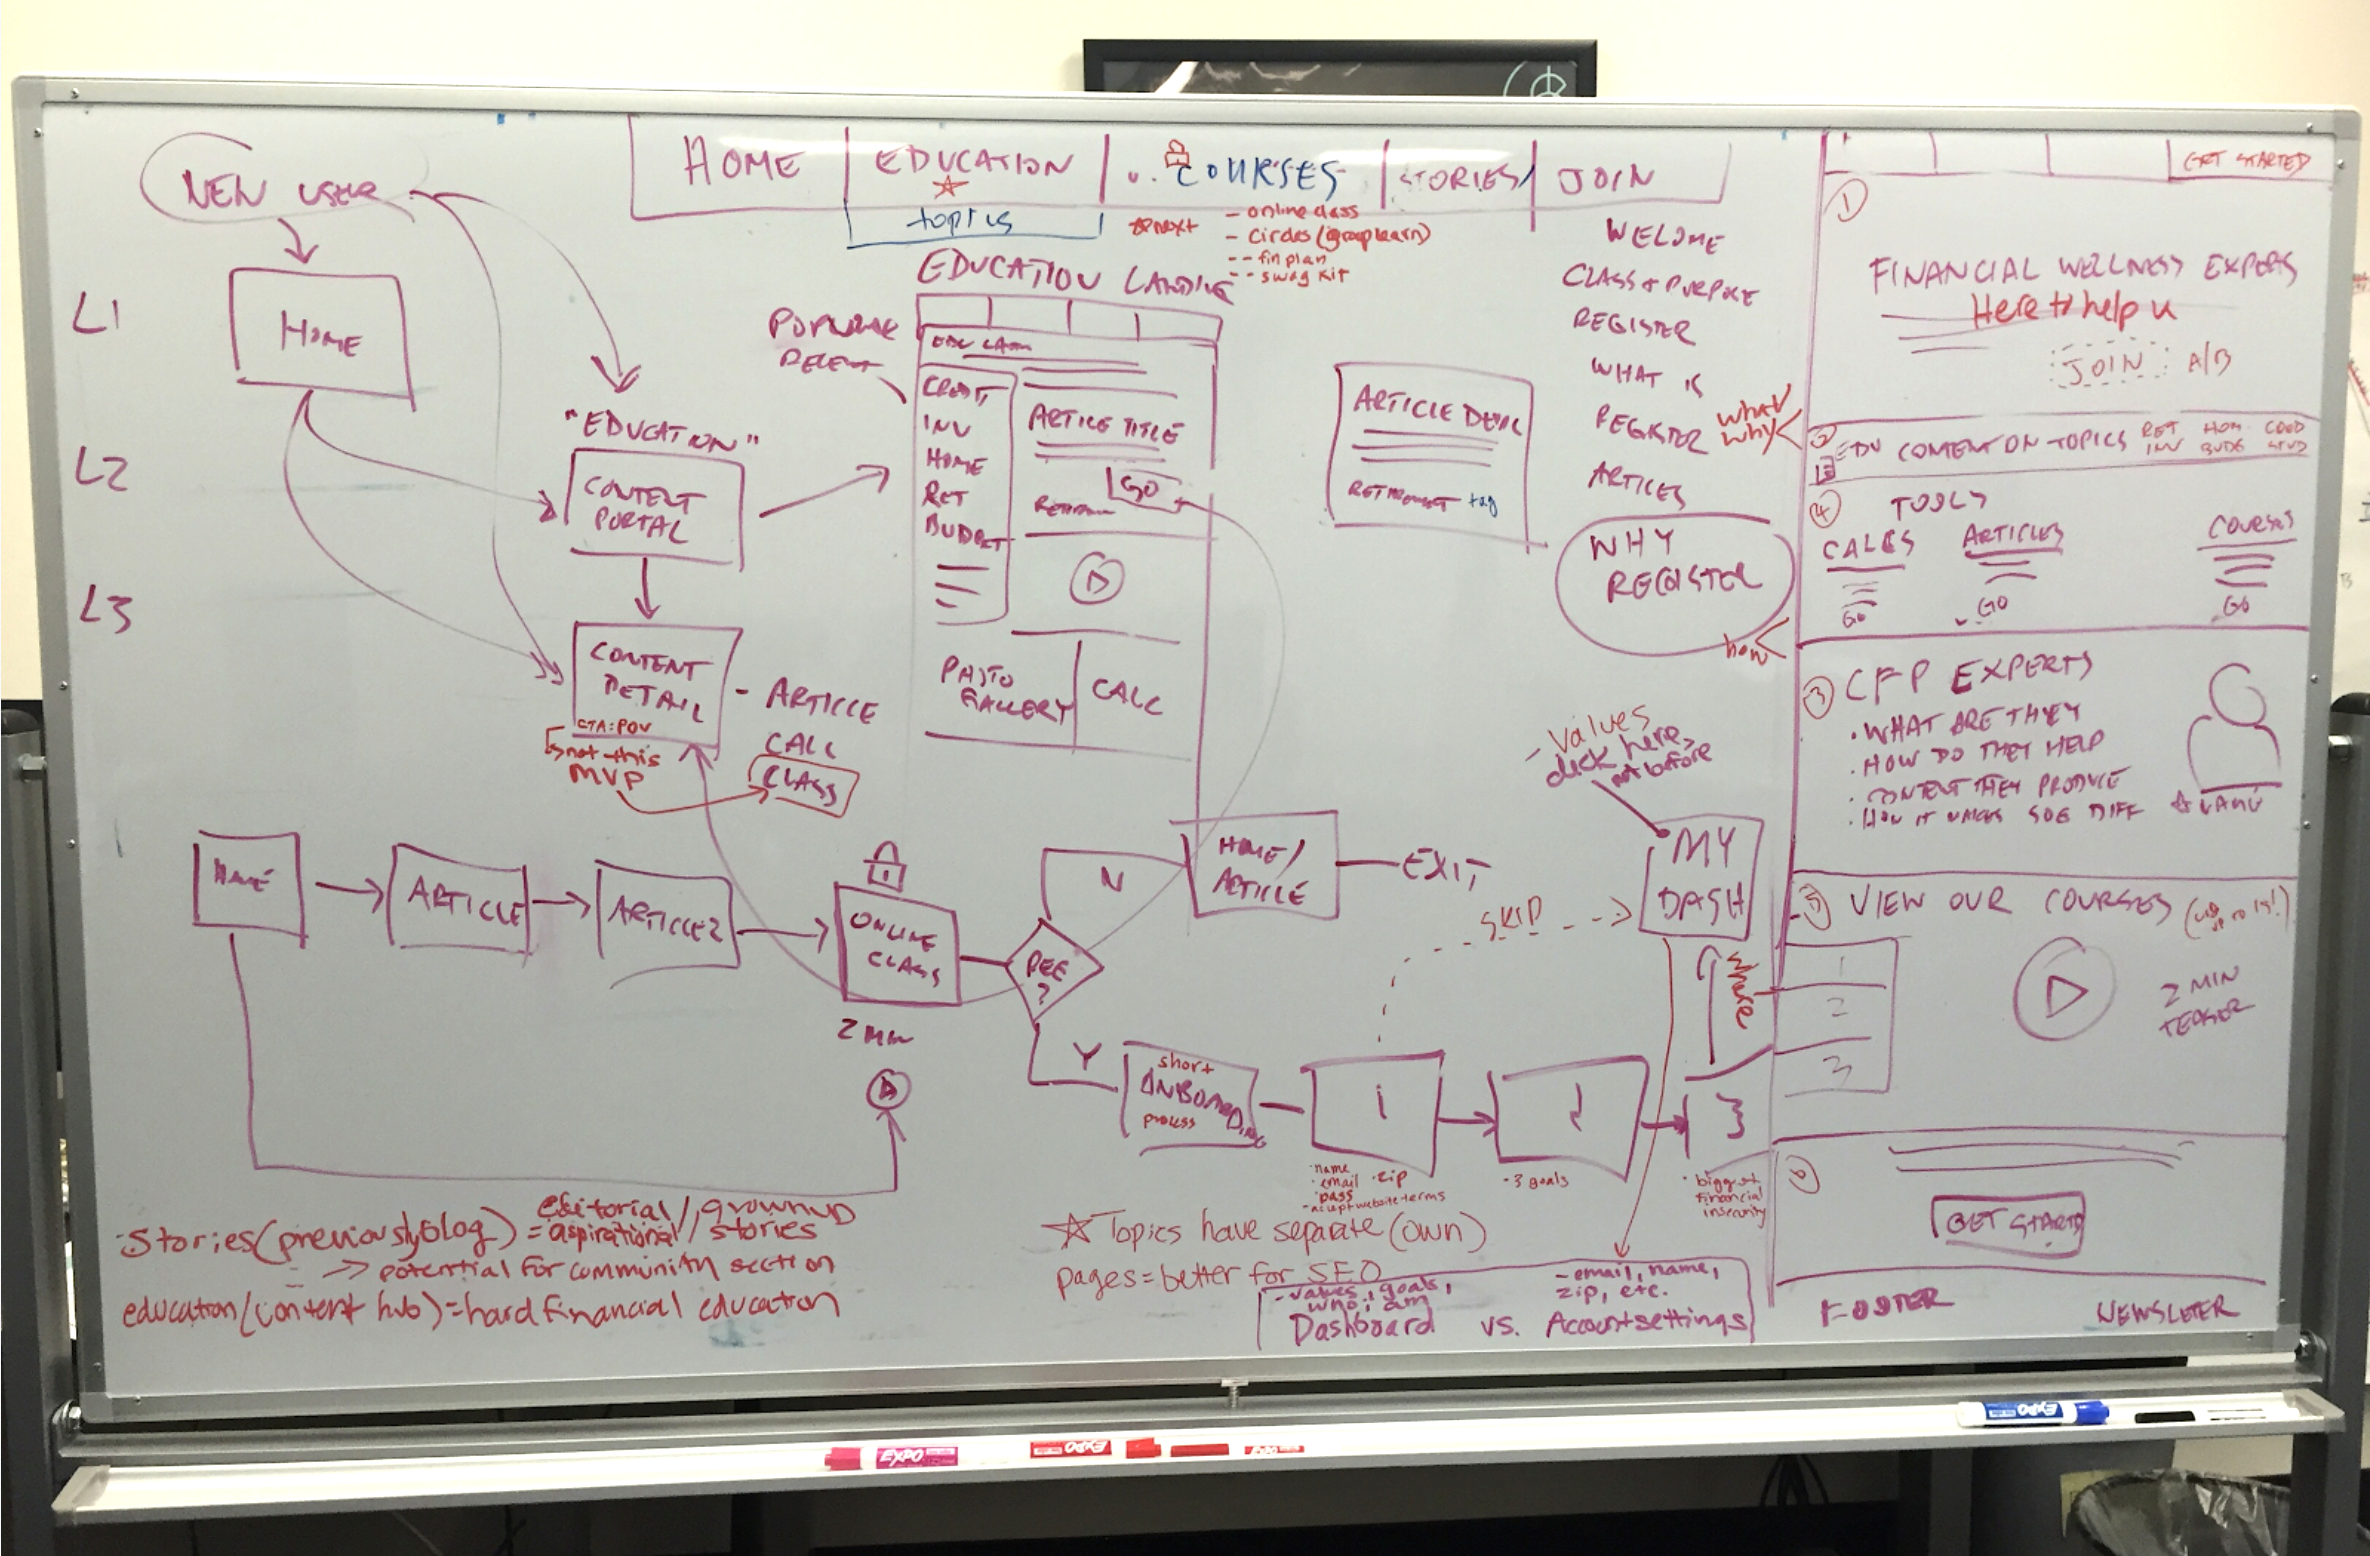 NEW USER
HOME
EDUCATION
COURSES
STORIES
JOIN
topics
next
- online class
- circles (group learn)
-- fin plan
-- swag kit
L1
L2
L3
HOME
"EDUCATION"
CONTENT
PORTAL
CONTENT
DETAIL
CTA: POV
not this
MVP
- ARTICLE
CALC
CLASS
POPULAR
EDUCATION LANDING
CREDIT
INV
HOME
RET
BUDGET
ARTICLE TITLE
GO
PHOTO
GALLERY
CALC
ARTICLE DETAIL
RETIREMENT tag
WELCOME
CLASS + PURPOSE
REGISTER
WHAT IS
REGISTER
ARTICLES
WHY
REGISTER
what
why
how
HOME
ARTICLE
ARTICLE 2
ONLINE
CLASS
2 MIN
REE
?
N
Y
HOME/
ARTICLE
EXIT
short
ONBOARDING
process
1
2
3
· name
· email · zip
· pass
- accept website terms
- 3 goals
· biggest
financial
insecurity
SKIP
- Values
click here,
not before
MY
DASH
where
Stories (previously blog) = editorial/grownup
aspirational/stories
-> potential for community section
education (content hub) = hard financial education
Topics have separate (own)
pages = better for SEO
- values, goals,
who i am
Dashboard
vs.
- email, name,
zip, etc.
Account settings
GET STARTED
1
FINANCIAL WELLNESS EXPERTS
Here to help u
JOIN
A/B
2
EDU CONTENT ON TOPICS
RET HOM
INV BUDG
4
TOOLS
CALCS
ARTICLES
COURSES
GO
GO
GO
3
CFP EXPERTS
· WHAT ARE THEY
· HOW DO THEY HELP
· CONTENT THEY PRODUCE
· HOW IT MAKES SOG DIFF
5
VIEW OUR COURSES
1
2
3
2 MIN
TEASER
6
GET STARTED
FOOTER
NEWSLETER
EXPO
EXPO
EXPO